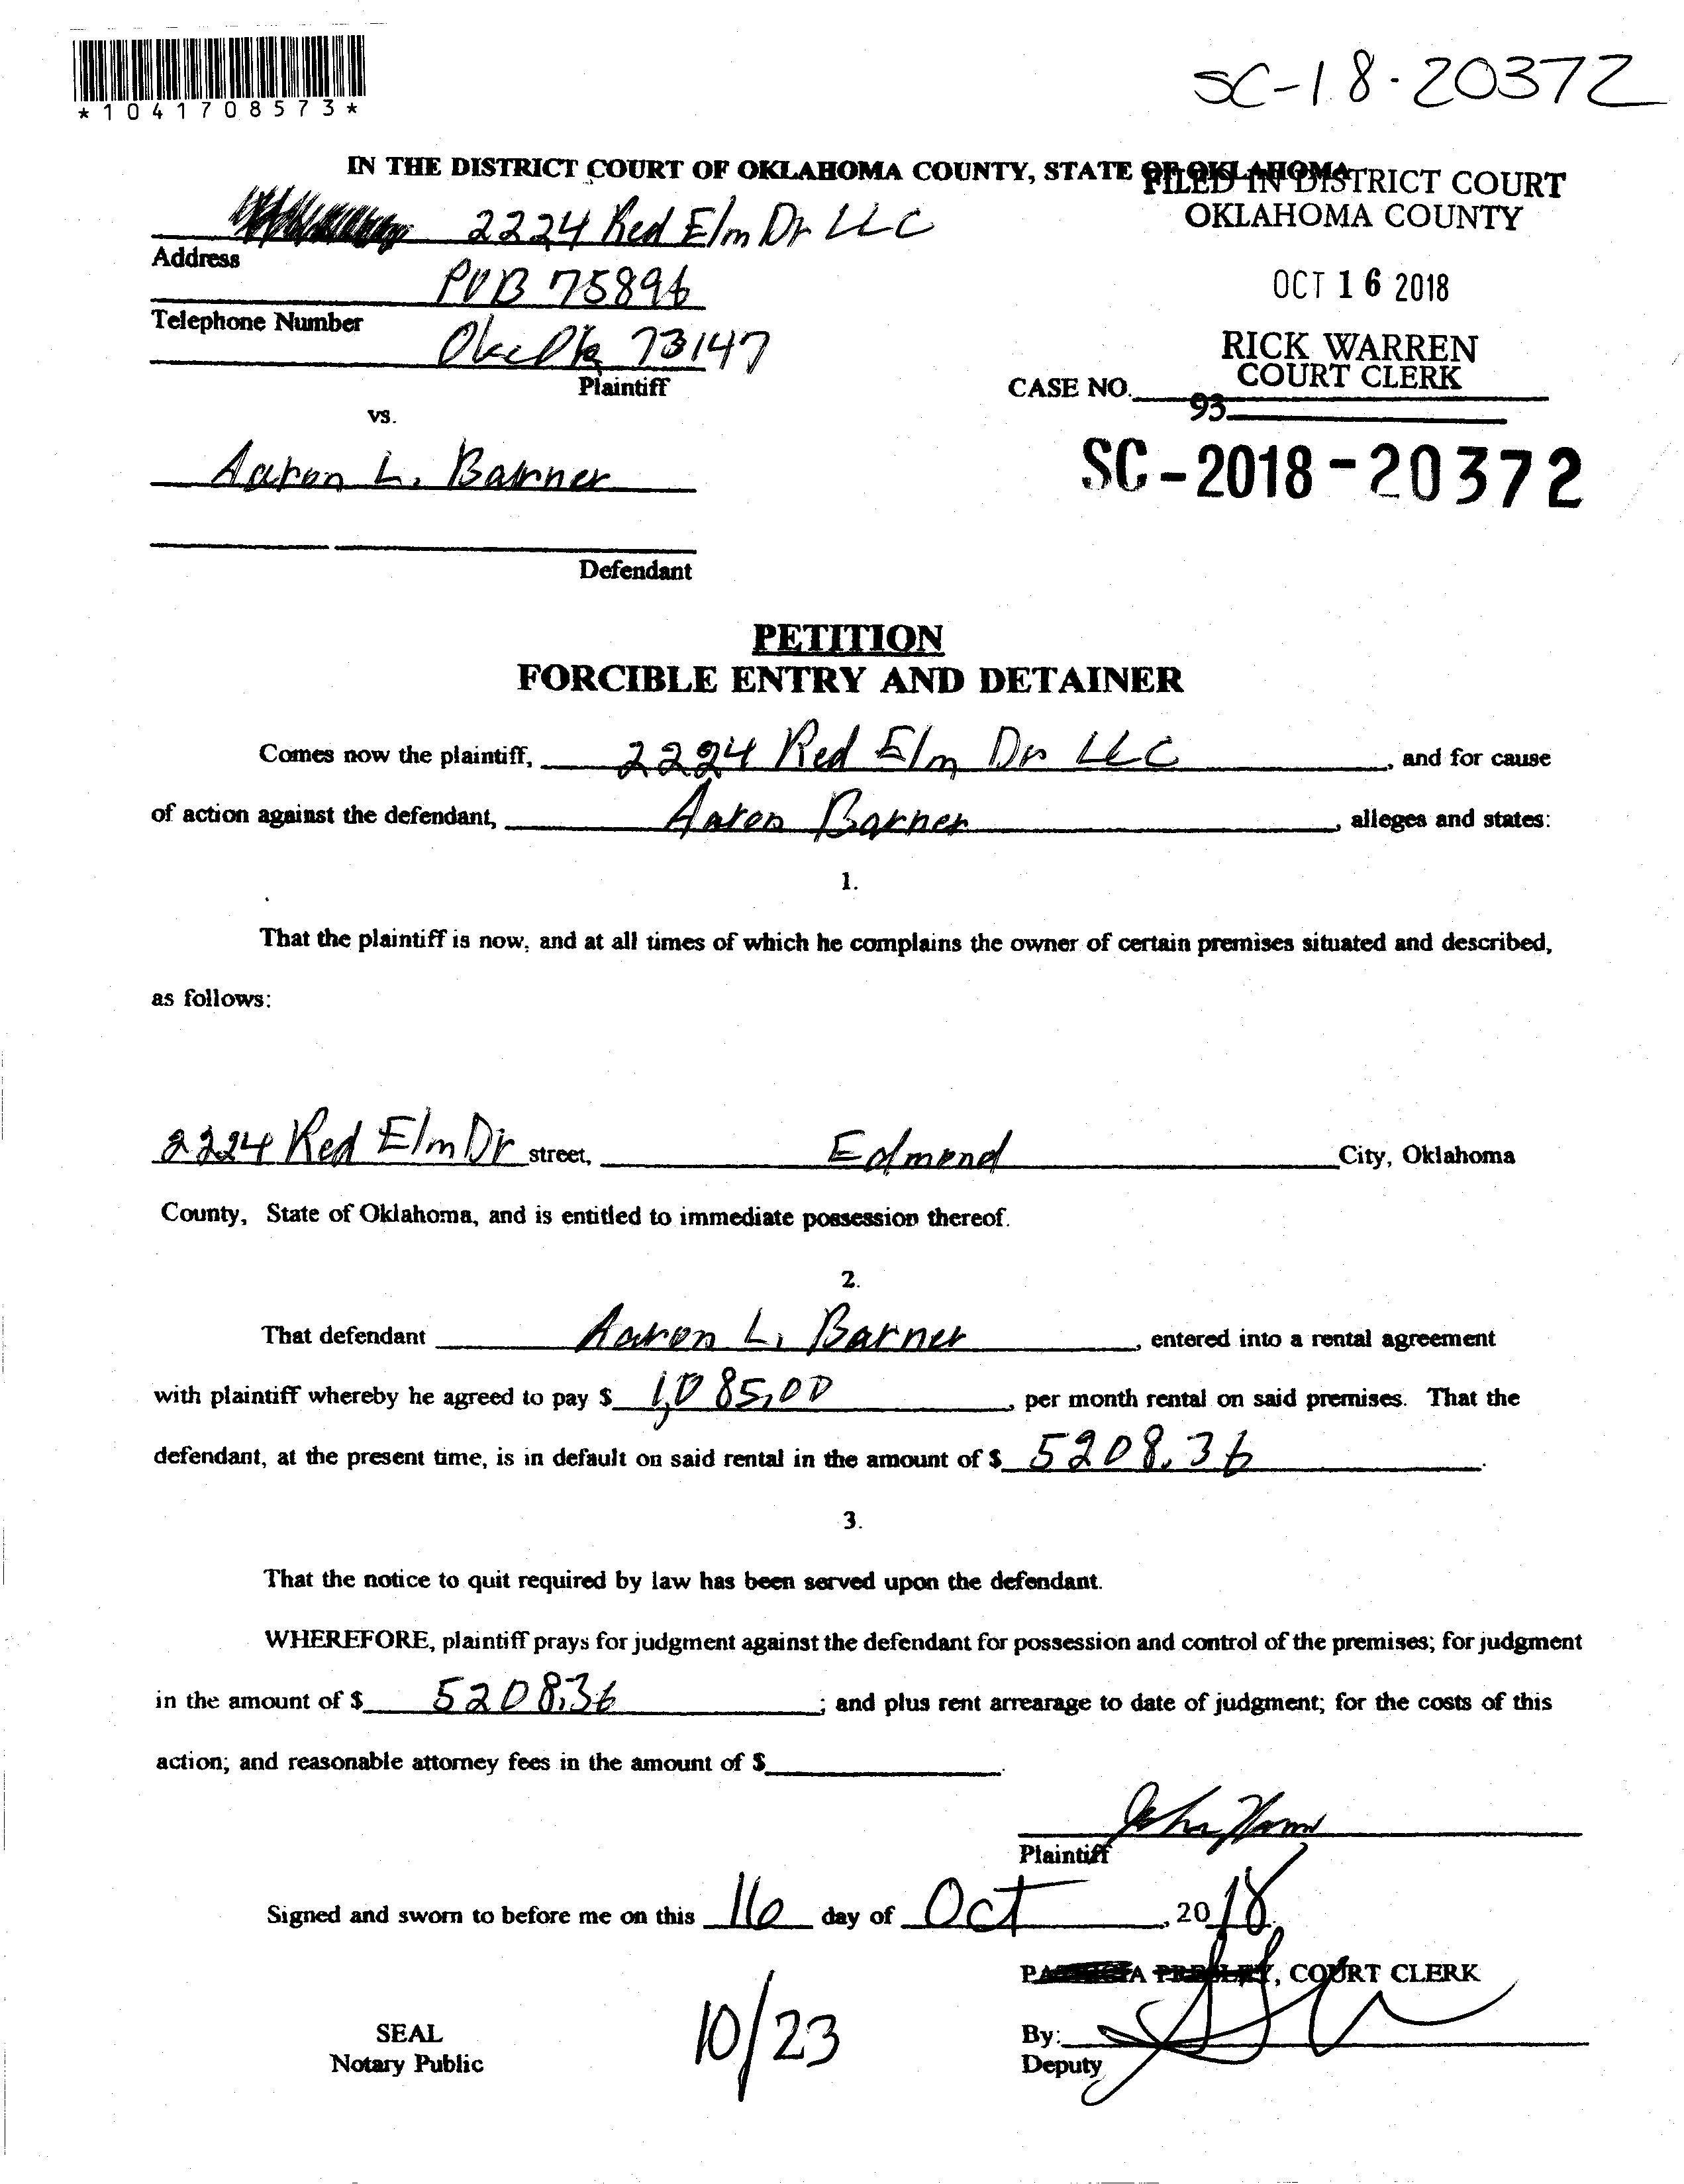 *1041708573*
SC-18-20372
IN THE DISTRICT COURT OF OKLAHOMA COUNTY, STATE OF OKLAHOMA
FILED IN DISTRICT COURT
OKLAHOMA COUNTY
OCT 16 2018
RICK WARREN
COURT CLERK
2224 Red Elm Dr LLC
Address
POB 75896
Telephone Number
Okc Ok 73147
Plaintiff
CASE NO.
93
vs.
Aaron L. Barner
SC-2018-20372
Defendant
PETITION
FORCIBLE ENTRY AND DETAINER
Comes now the plaintiff, 2224 Red Elm Dr LLC, and for cause
of action against the defendant, Aaron Barner, alleges and states:
1.
That the plaintiff is now, and at all times of which he complains the owner of certain premises situated and described,
as follows:
2224 Red Elm Dr street, Edmond City, Oklahoma
County, State of Oklahoma, and is entitled to immediate possession thereof.
2.
That defendant Aaron L. Barner, entered into a rental agreement
with plaintiff whereby he agreed to pay $ 1,085.00, per month rental on said premises. That the
defendant, at the present time, is in default on said rental in the amount of $ 5208.36.
3.
That the notice to quit required by law has been served upon the defendant.
WHEREFORE, plaintiff prays for judgment against the defendant for possession and control of the premises; for judgment
in the amount of $ 5208.36; and plus rent arrearage to date of judgment; for the costs of this
action; and reasonable attorney fees in the amount of $.
Plaintiff
Signed and sworn to before me on this 16 day of Oct, 2018.
, COURT CLERK
SEAL
Notary Public
10/23
By:
Deputy